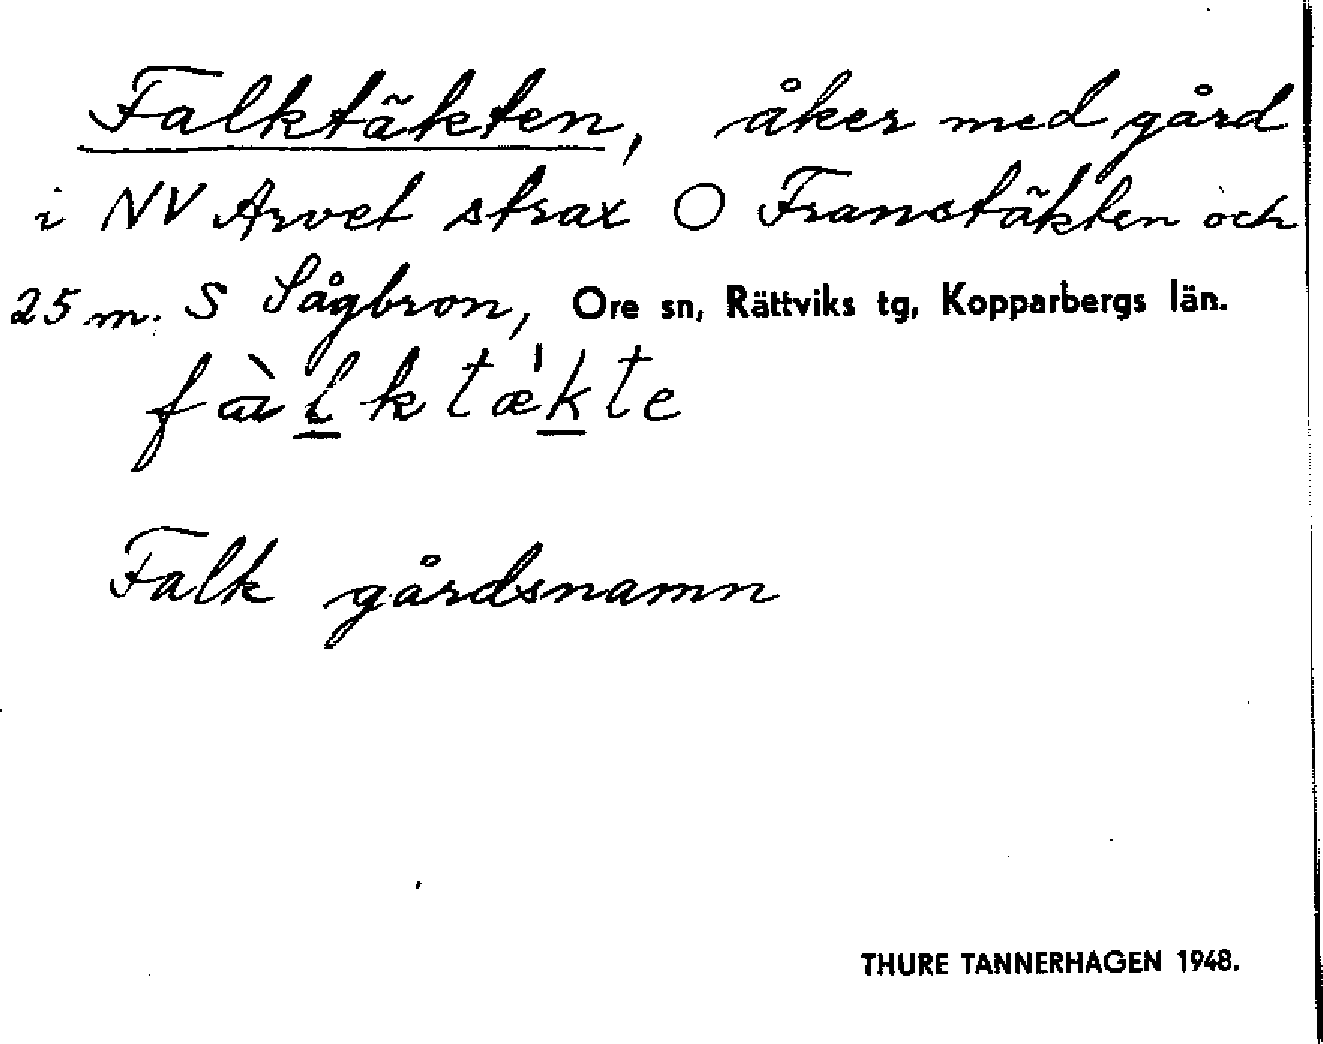 Falktäkten, åker med gård
i NV Arvet strax O Franstäkten och
25 m. S Sågbron, Ore sn, Rättviks tg, Kopparbergs län.
fàlktæ'kte
Falk gårdsnamn
THURE TANNERHAGEN 1948.